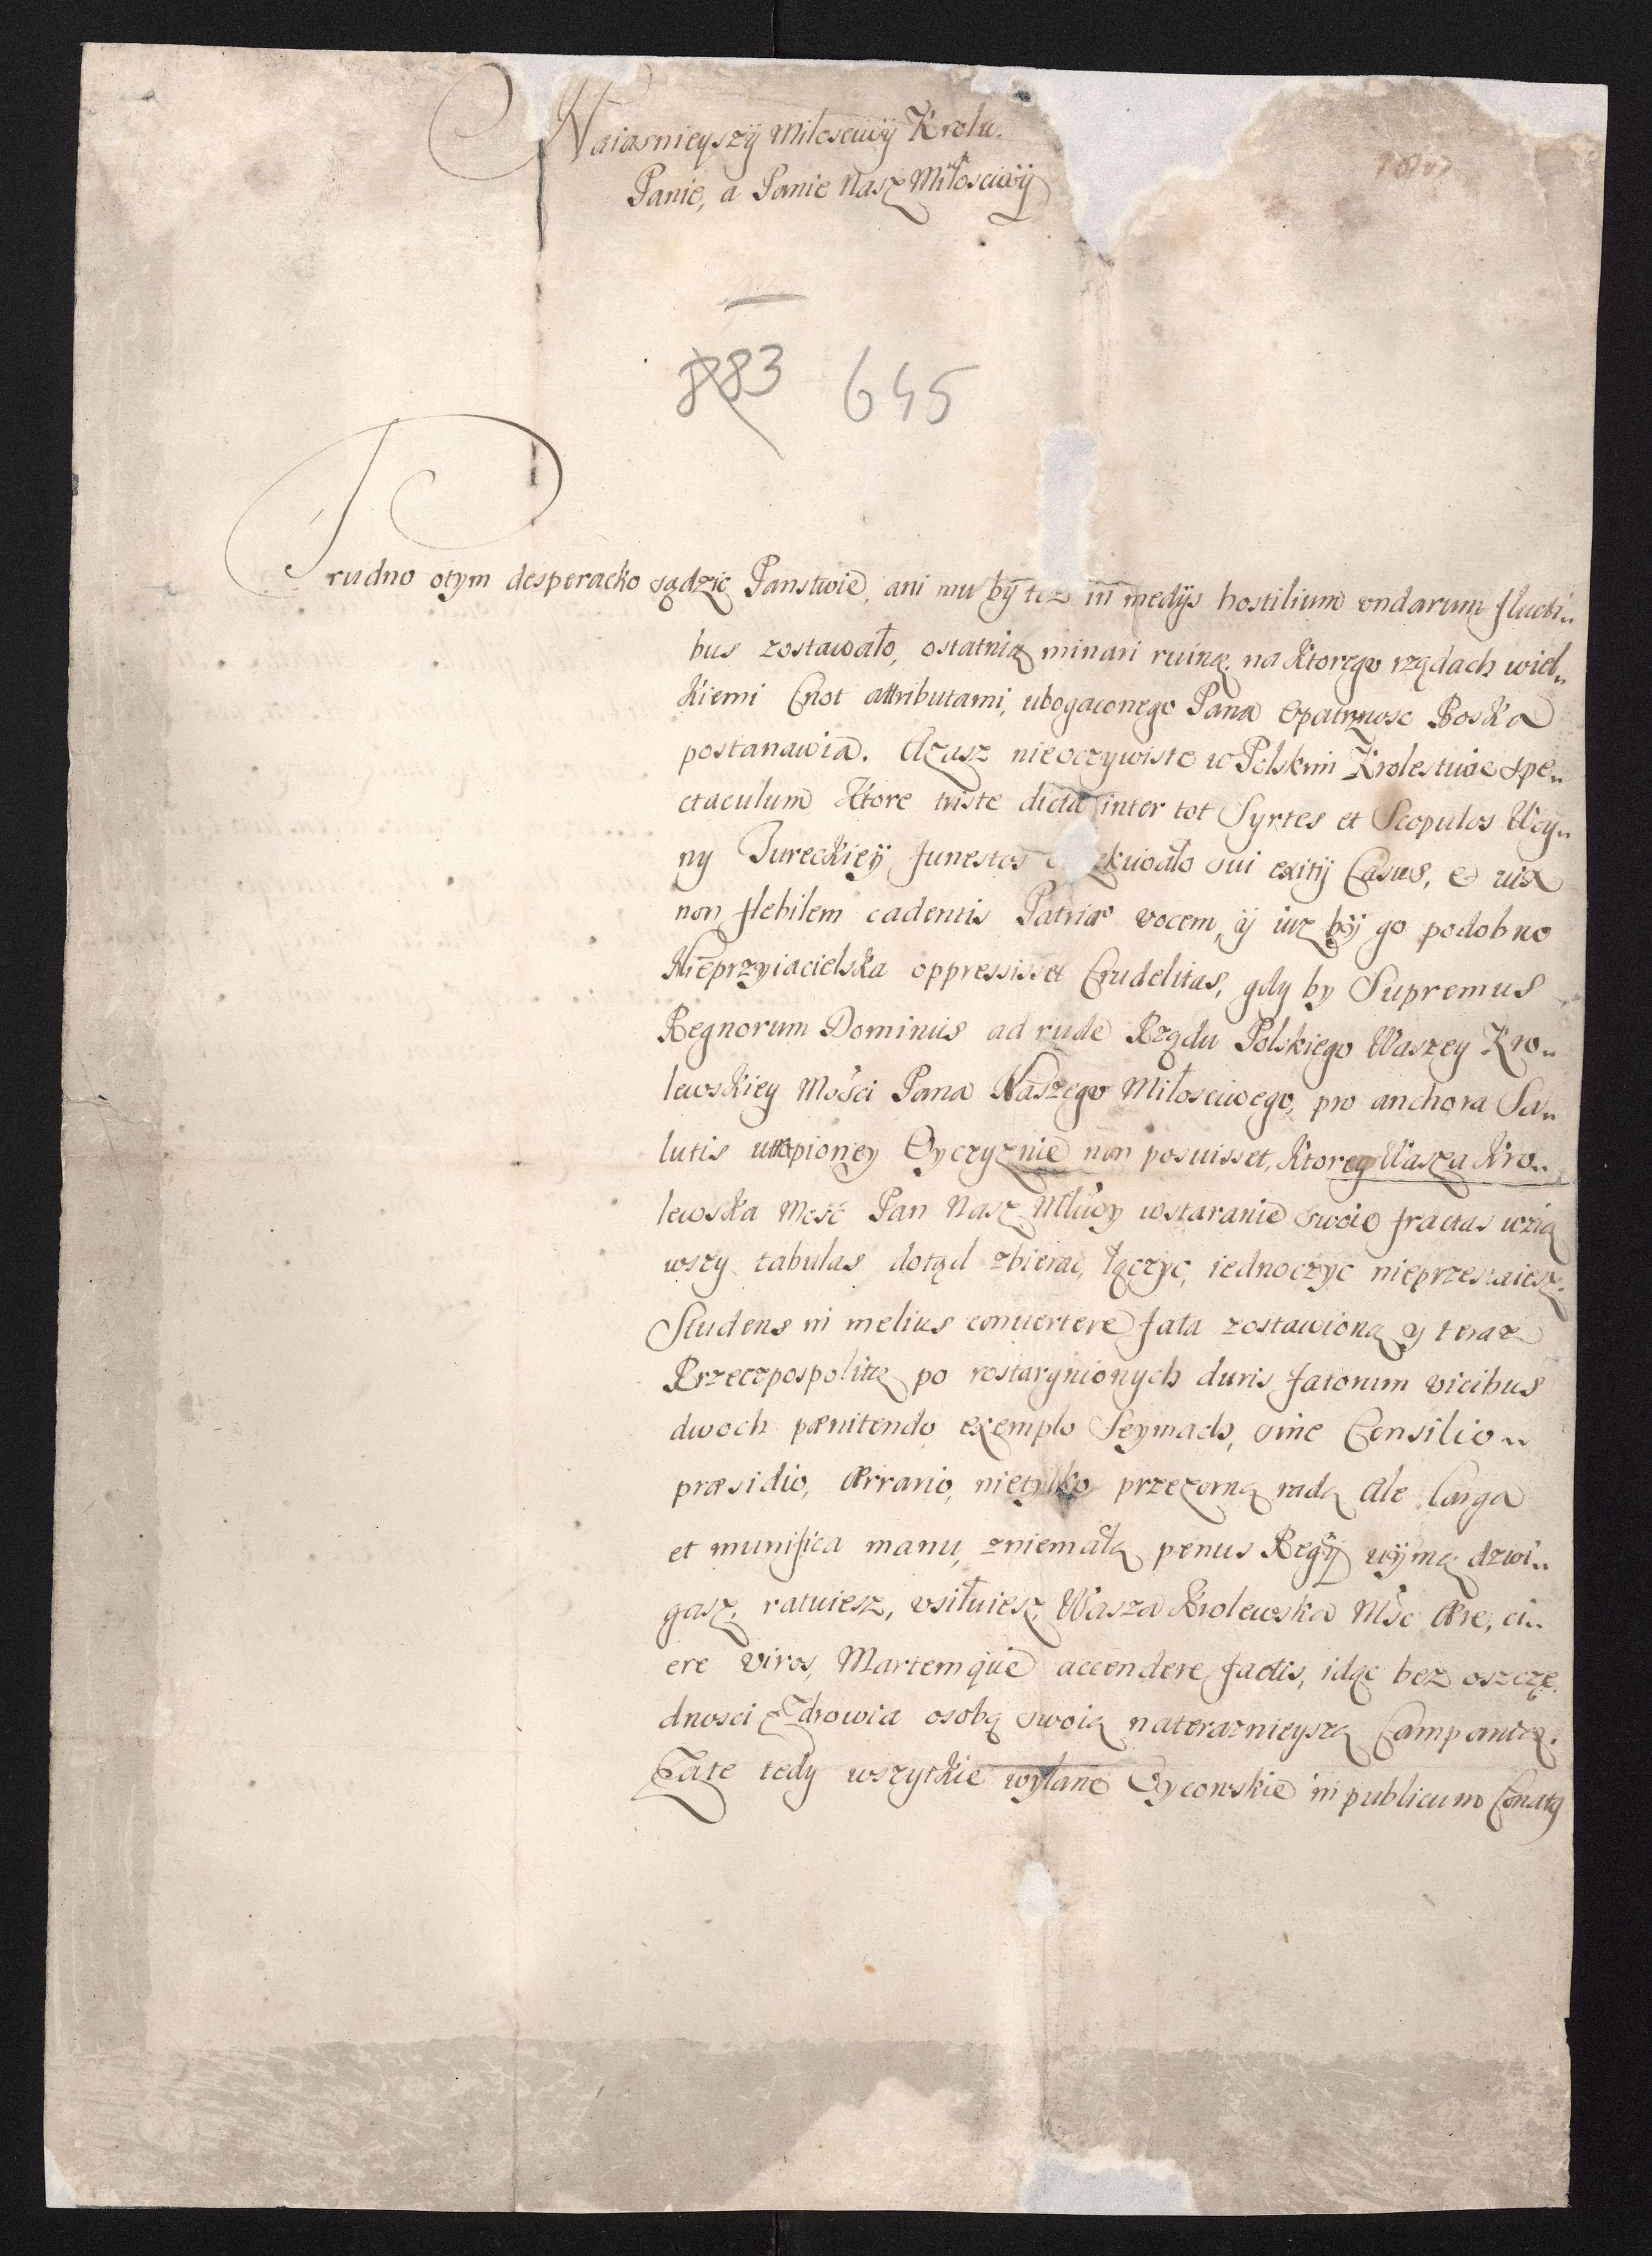 Naiasnieyszÿ Miłosciwÿ Krolu.
Panie, a Panie Nasz Miłosciwÿ
883 645
Trudno otym desperacko sądzic Panstwie, ani mu bÿ tez in medijs hostilium vndarum flucti„
bus zostawało, ostatnią minari ruinę, na ktorego rządach wiel„
kiemi Cnot attributami, ubogaconego Pana Opatrznosc Boska
postanawia. Azasz nieoczywiste w Polskim Krolestwie spe„
ctaculum ktore triste dictu inter tot Syrtes et Scopulos Woÿ„
ny Tureckieÿ funestos sui exitij Casus, & vix
non flebilem cadentis Patriæ vocem, ÿ iuz bÿ go podobno
Nieprzyiacielska oppressisset Crudelitas, gdy by Supremus
Regnorum Dominus ad rude Rządu Polskiego Waszey Kro„
lewskiey Mości Pana Naszego Miłosciwego, pro anchora Sa„
lutis utrapioney Oyczyznie non posuisset, ktorey Wasza Kro„
lewska Mość Pan Nasz Młćwy wstaranie swoie fractas wzią
wszy tabulas dotąd zbierac, łączyc, iednoczyc nieprzestaiesz.
Studens in melius conuertere fata zostawioną y teraz
Rrzeczpospolitą po rostargnionych duris fatorum vicibus
dwoch pænitendo exemplo Seymach, sine Consilio„
præsidio, Ærrario, nietylko przezorną radą Ale larga
et munifica manu, zniemałą penus Regÿ uÿmą dzwi„
gasz, ratuiesz, vsiłuiesz Wasza Krolewska Mśc Ære, ci„
ere viros, Martemque accendere factis, idąc bez oszczę
dnosci Zdrowia osobą swoią nateraznieyszą Campanią.
Zate tedy wszytkie wylane Oycowskie in publicum Conaty